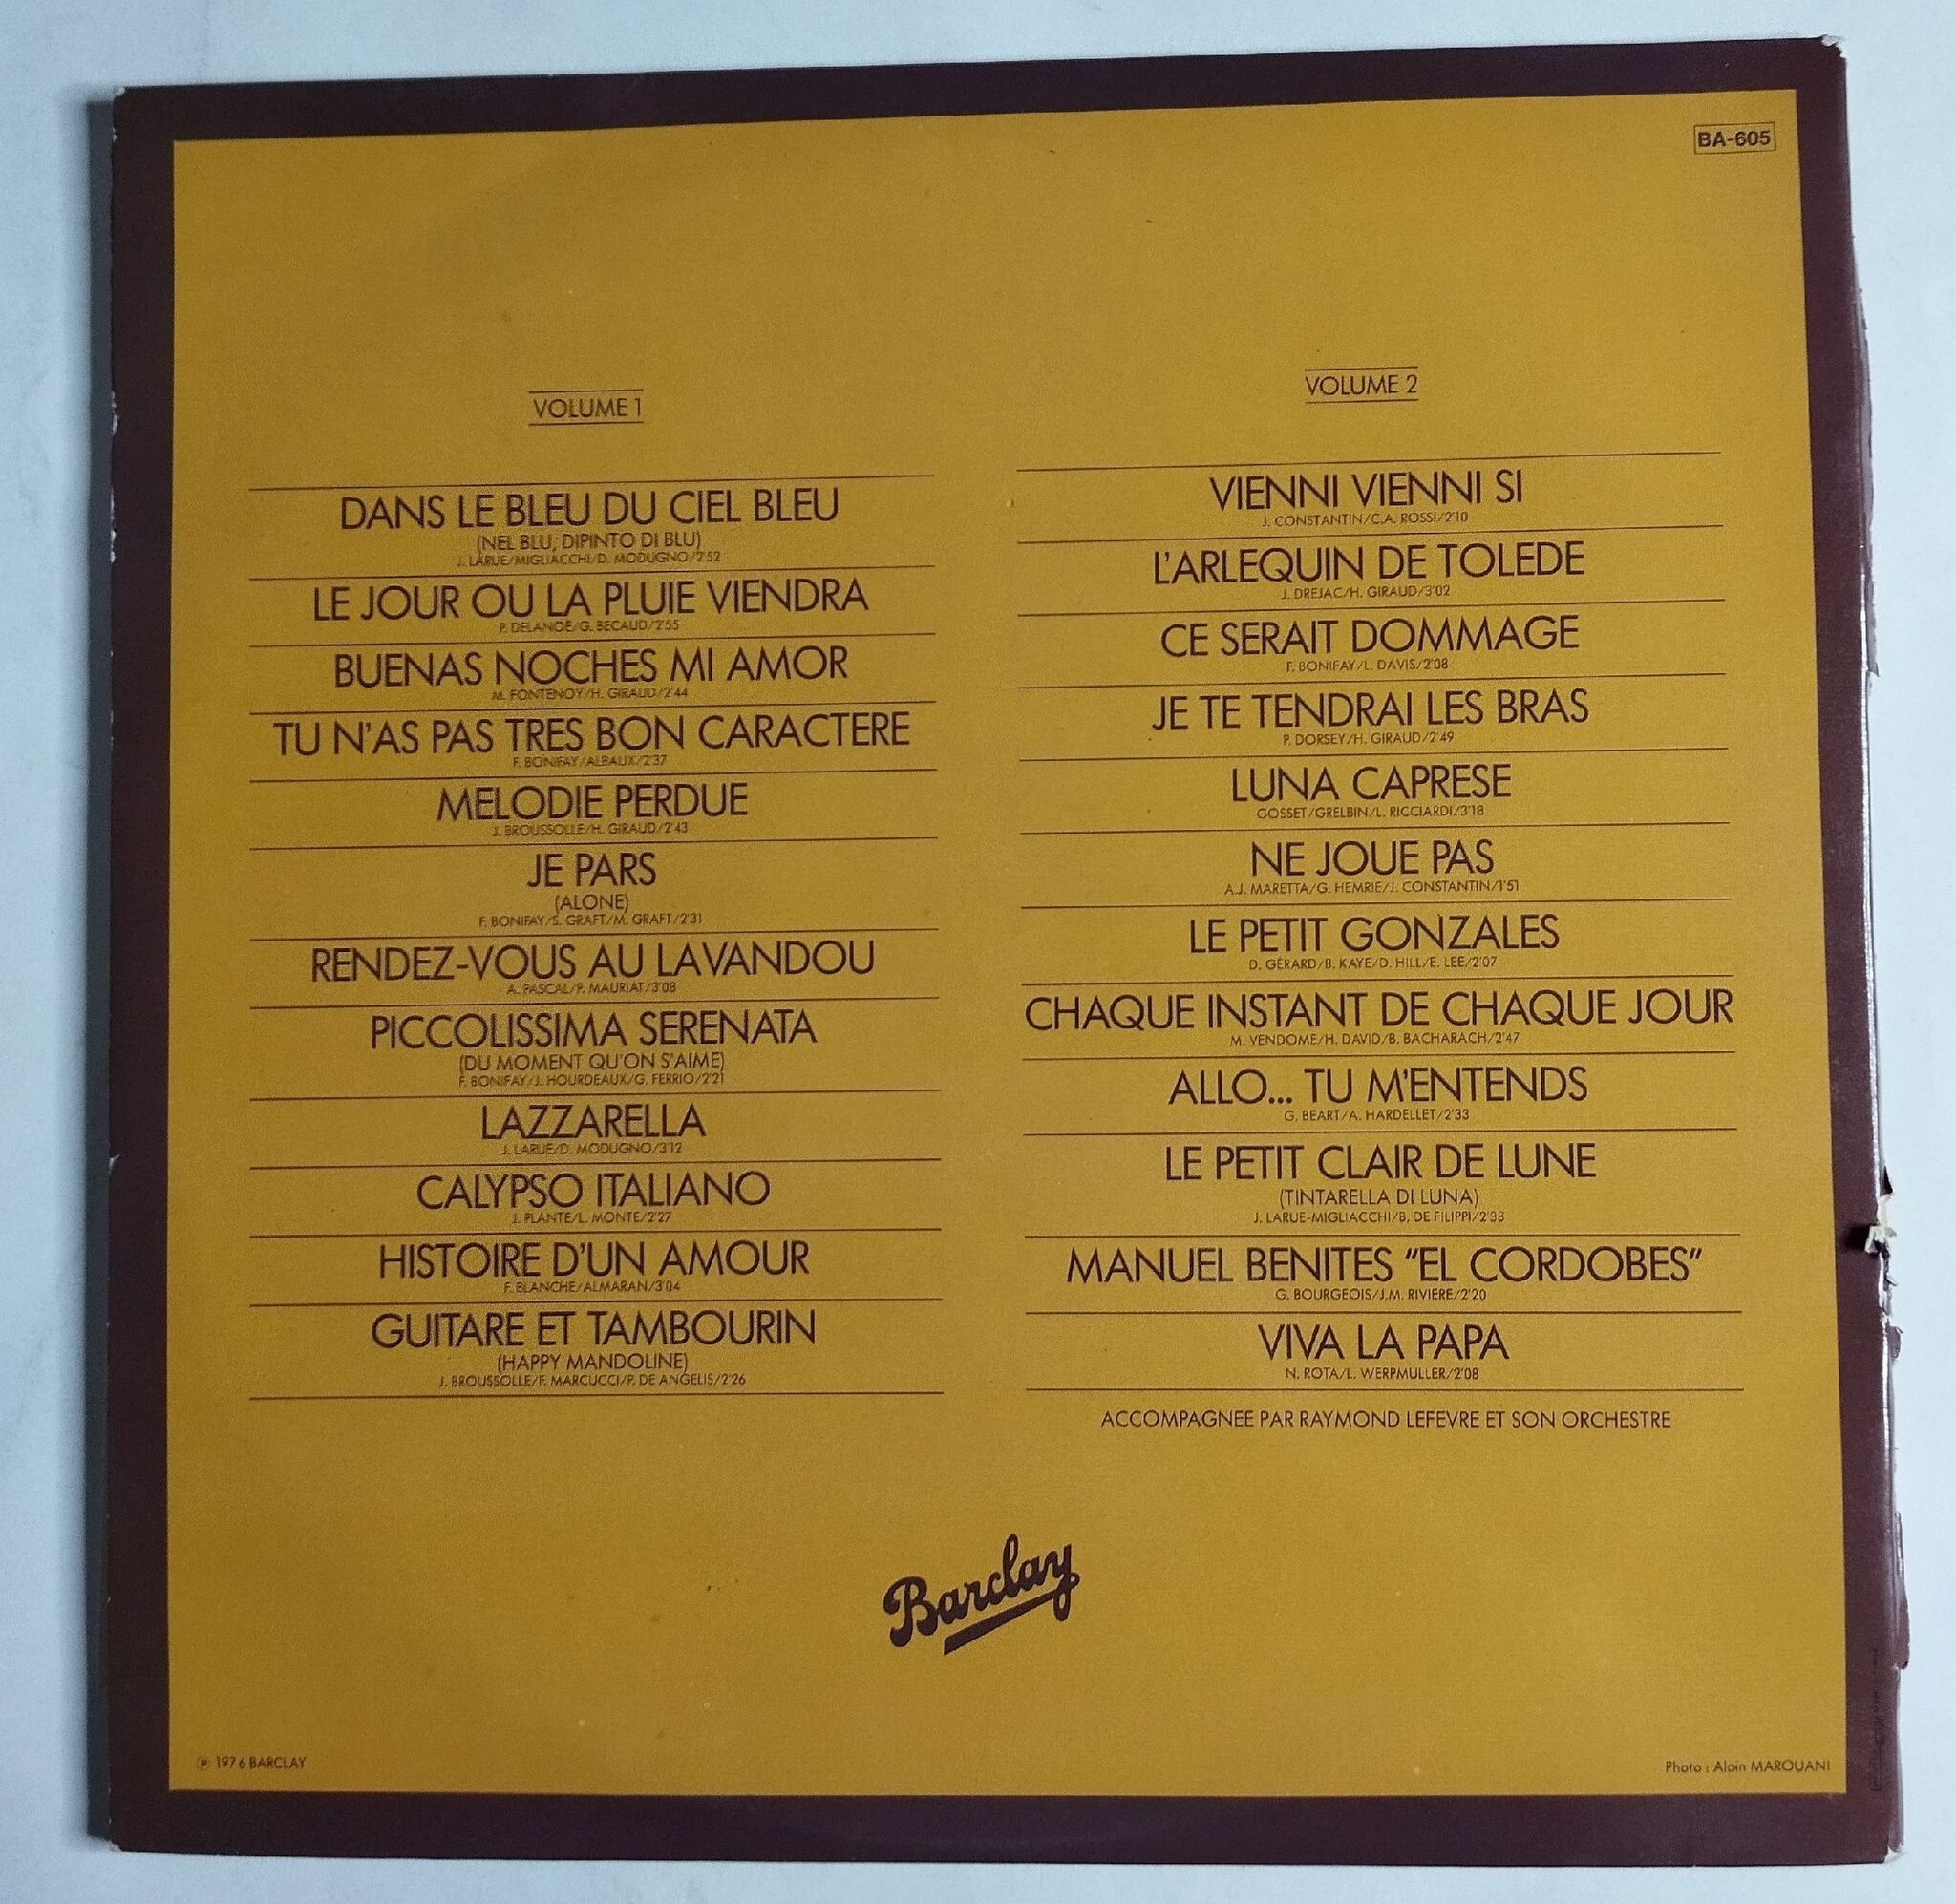 BA-605
VOLUME 1
DANS LE BLEU DU CIEL BLEU
(NEL BLU, DIPINTO DI BLU)
J. LARUE/MIGLIACCHI/D. MODUGNO/2'52
LE JOUR OU LA PLUIE VIENDRA
P. DELANOË/G. BECAUD/2'55
BUENAS NOCHES MI AMOR
M. FONTENOY/H. GIRAUD/2'44
TU N'AS PAS TRES BON CARACTERE
F. BONIFAY/ALBAUX/2'37
MELODIE PERDUE
J. BROUSSOLLE/H. GIRAUD/2'43
JE PARS
(ALONE)
F. BONIFAY/S. GRAFT/M. GRAFT/2'31
RENDEZ-VOUS AU LAVANDOU
A. PASCAL/P. MAURIAT/3'08
PICCOLISSIMA SERENATA
(DU MOMENT QU'ON S'AIME)
F. BONIFAY/J. HOURDEAUX/G. FERRIO/2'21
LAZZARELLA
J. LARUE/D. MODUGNO/3'12
CALYPSO ITALIANO
J. PLANTE/L. MONTE/2'27
HISTOIRE D'UN AMOUR
F. BLANCHE/ALMARAN/3'04
GUITARE ET TAMBOURIN
(HAPPY MANDOLINE)
J. BROUSSOLLE/F. MARCUCCI/P. DE ANGELIS/2'26
VOLUME 2
VIENNI VIENNI SI
J. CONSTANTIN/C.A. ROSSI/2'10
L'ARLEQUIN DE TOLEDE
J. DREJAC/H. GIRAUD/3'02
CE SERAIT DOMMAGE
F. BONIFAY/L. DAVIS/2'08
JE TE TENDRAI LES BRAS
P. DORSEY/H. GIRAUD/2'49
LUNA CAPRESE
GOSSET/GRELBIN/L. RICCIARDI/3'18
NE JOUE PAS
A.J. MARETTA/G. HEMRIE/J. CONSTANTIN/1'51
LE PETIT GONZALES
D. GÉRARD/B. KAYE/D. HILL/E. LEE/2'07
CHAQUE INSTANT DE CHAQUE JOUR
M. VENDOME/H. DAVID/B. BACHARACH/2'47
ALLO... TU M'ENTENDS
G. BEART/A. HARDELLET/2'33
LE PETIT CLAIR DE LUNE
(TINTARELLA DI LUNA)
J. LARUE-MIGLIACCHI/B. DE FILIPPI/2'38
MANUEL BENITES "EL CORDOBES"
G. BOURGEOIS/J.M. RIVIERE/2'20
VIVA LA PAPA
N. ROTA/L. WERPMULLER/2'08
ACCOMPAGNEE PAR RAYMOND LEFEVRE ET SON ORCHESTRE
Barclay
℗ 1976 BARCLAY
Photo : Alain MAROUANI